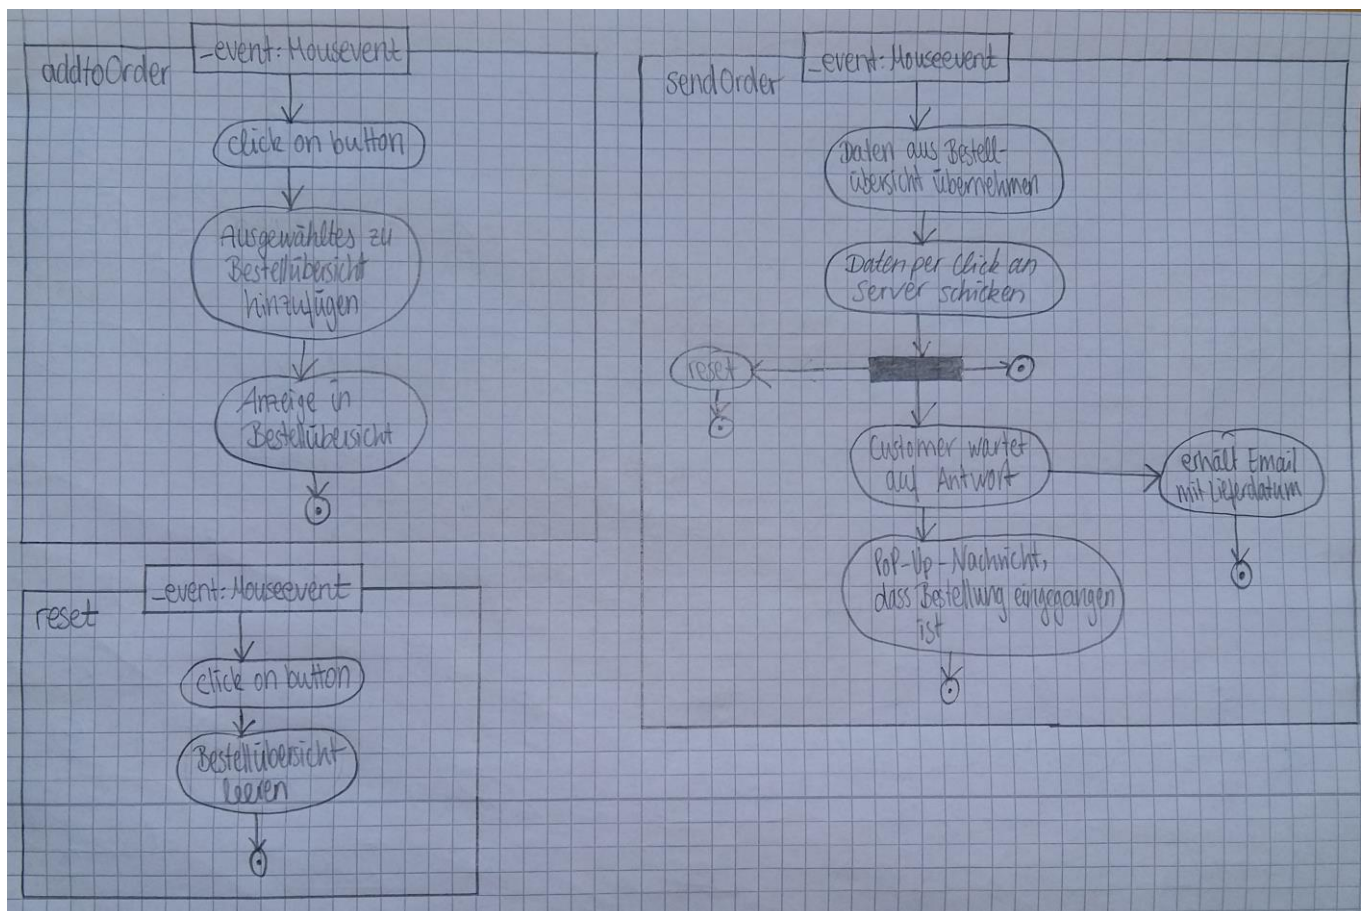 addtoOrder
_event: Mousevent
click on button
Ausgewähltes zu
Bestellübersicht
hinzufügen
Anzeige in
Bestellübersicht
reset
_event: Mouseevent
click on button
Bestellübersicht
leeren
sendOrder
_event: Mouseevent
Daten aus Bestell-
übersicht übernehmen
Daten per Click an
Server schicken
reset
Customer wartet
auf Antwort
erhält Email
mit Lieferdatum
PoP-Up-Nachricht,
dass Bestellung eingegangen
ist